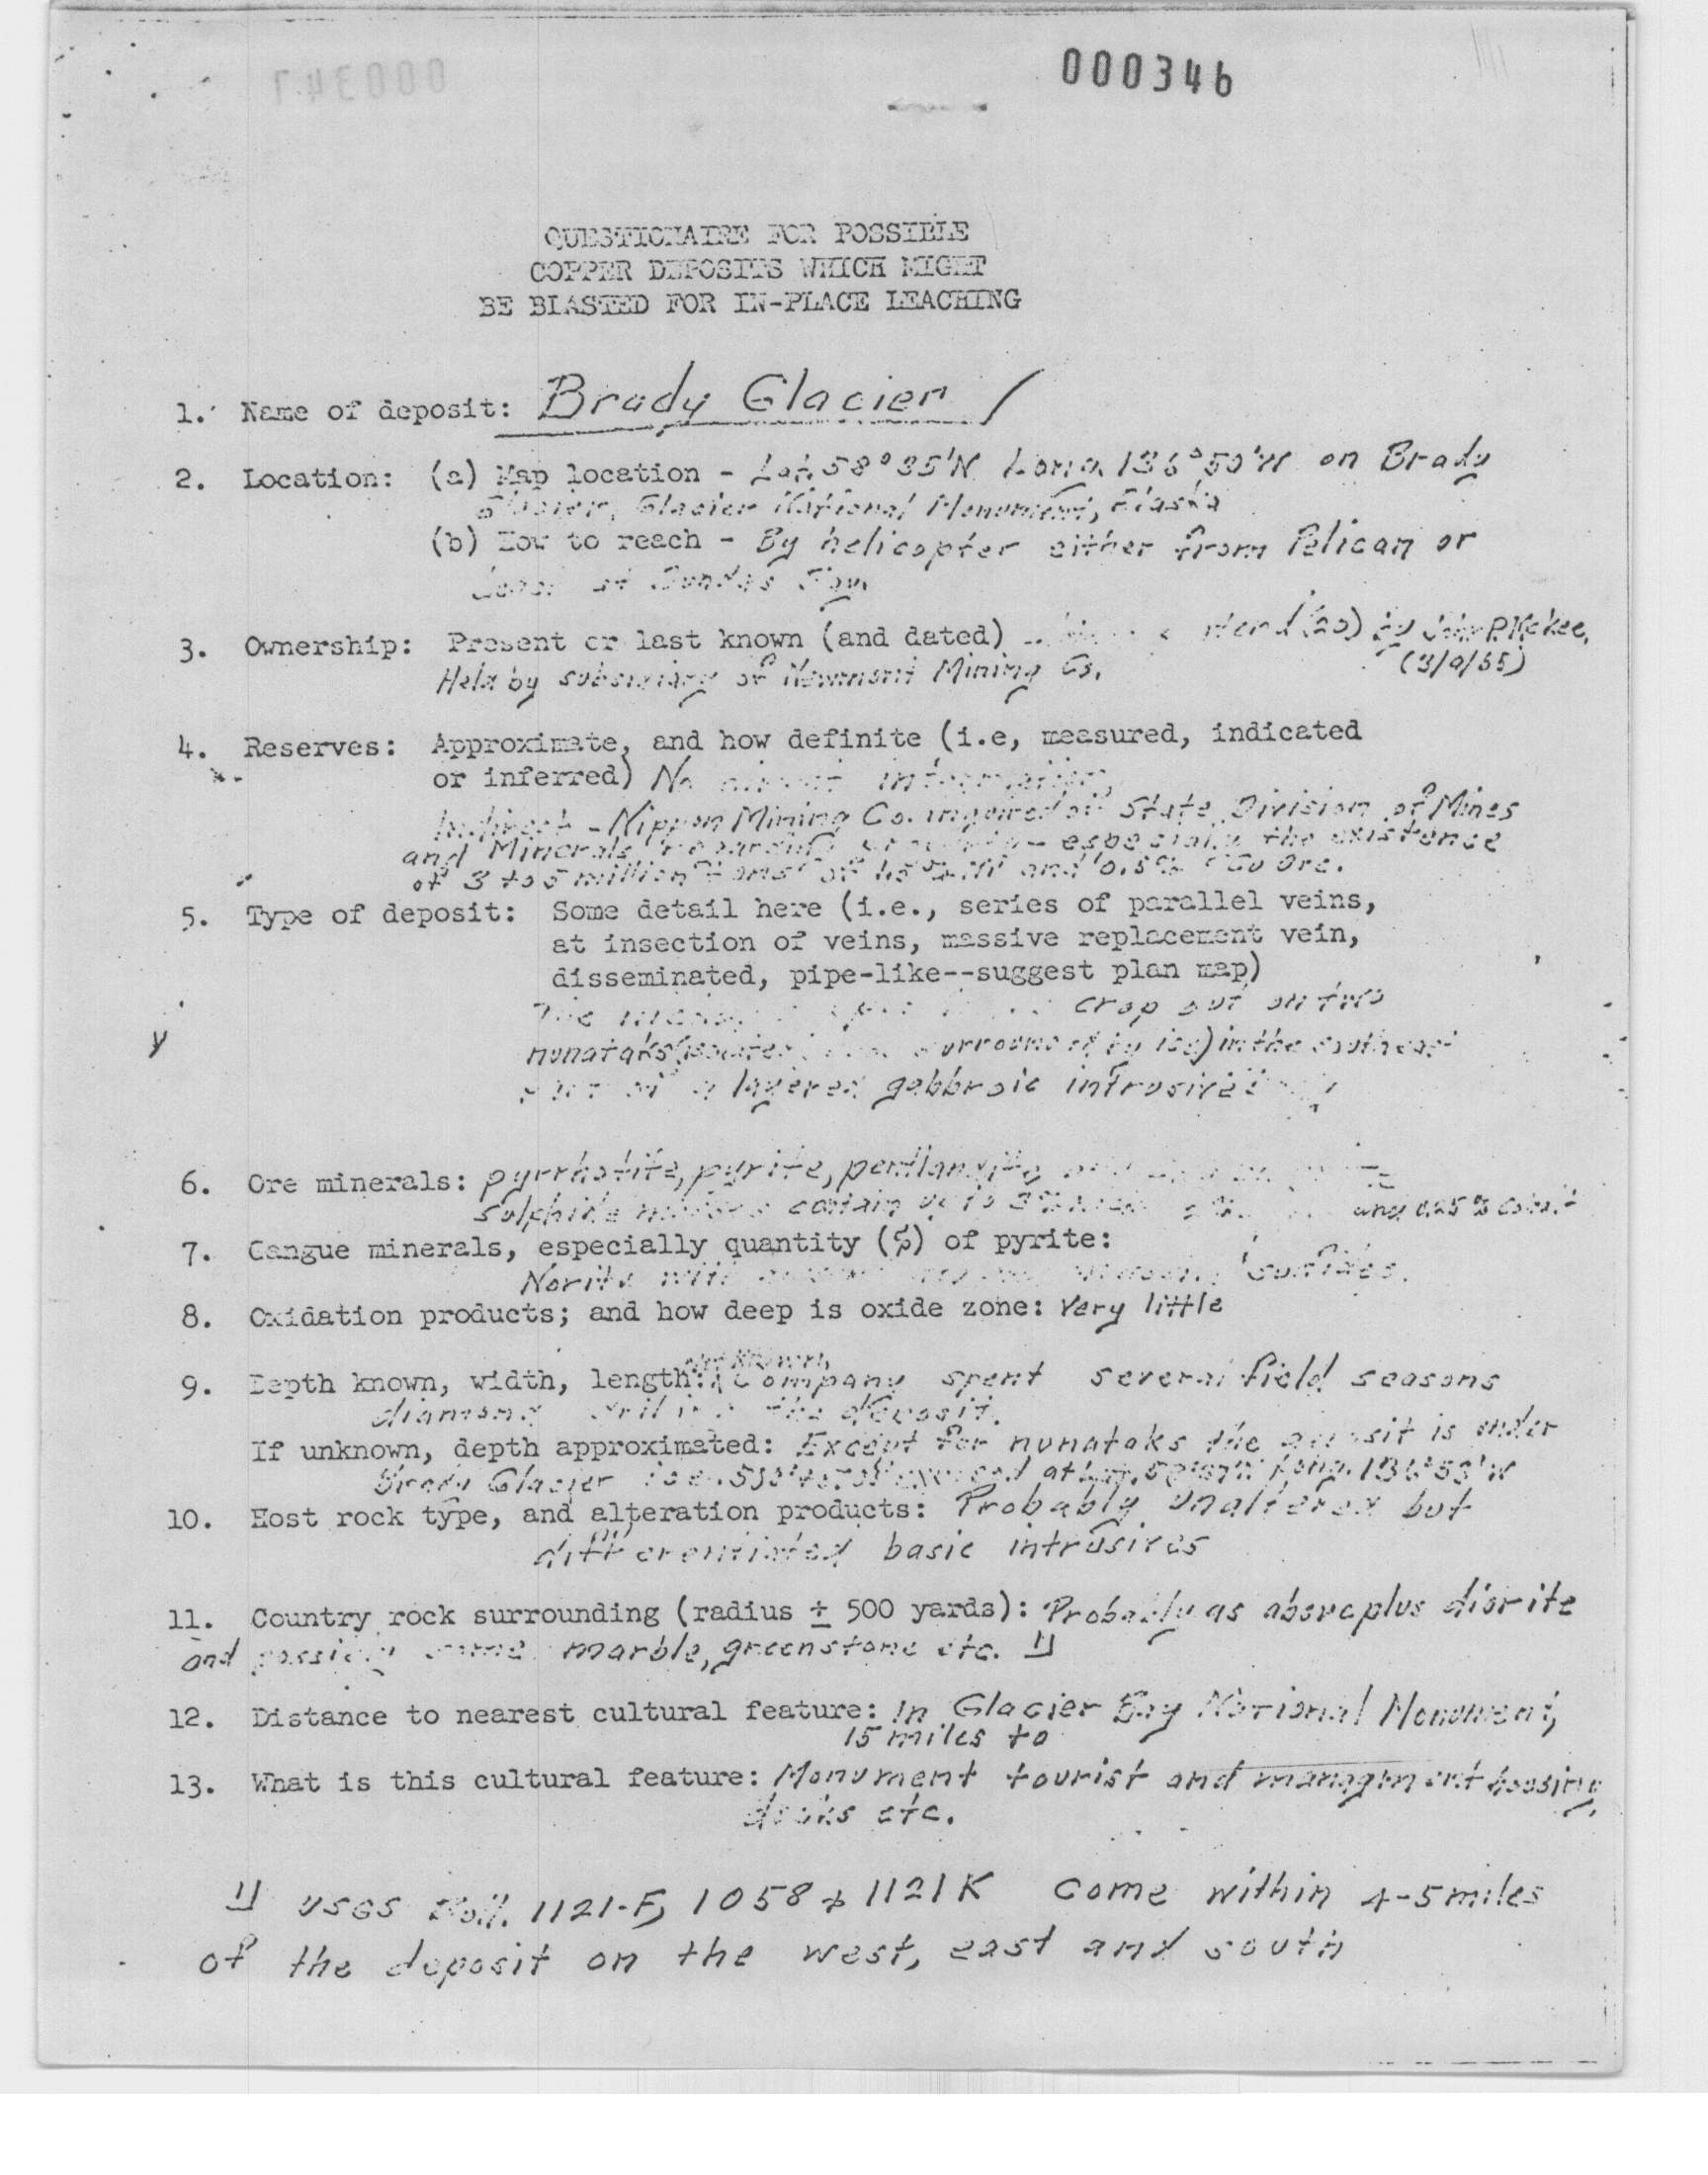 000346
QUESTIONAIRE FOR POSSIBLE
COPPER DEPOSITS WHICH MIGHT
BE BLASTED FOR IN-PLACE LEACHING
1. Name of deposit: Brady Glacier
2. Location: (a) Map location - Lat. 58°35'N Long. 136°50'W on Brady
Glacier, Glacier National Monument, Alaska
(b) How to reach - By helicopter either from Pelican or
at Dundas Bay.
3. Ownership: Present or last known (and dated)
Held by subsidiary of Newmont Mining Co.
4. Reserves: Approximate, and how definite (i.e, measured, indicated
or inferred) No direct information
Indirect - Nippon Mining Co. inquired of State Division of Mines
and Minerals regarding - especially the existence
of 3 to 5 million tons of and 0.5% Cu ore.
5. Type of deposit: Some detail here (i.e., series of parallel veins,
at insection of veins, massive replacement vein,
disseminated, pipe-like--suggest plan map)
The crop out on two
nunataks surrounded by ice) in the southeast
part of a layered gabbroic intrusive
6. Ore minerals: pyrrhotite, pyrite, pentlandite,
sulphide contain up to 3% and 0.25%
7. Gangue minerals, especially quantity (%) of pyrite:
Norite with sulfides.
8. Oxidation products; and how deep is oxide zone: Very little
9. Depth known, width, length: Company spent several field seasons
diamond drilling the deposit.
If unknown, depth approximated: Except for nunataks the deposit is under
Brady Glacier
10. Host rock type, and alteration products: Probably unaltered but
differentiated basic intrusives
11. Country rock surrounding (radius ± 500 yards): Probably as above plus diorite
and possibly some marble, greenstone etc. 1/
12. Distance to nearest cultural feature: In Glacier Bay National Monument,
15 miles to
13. What is this cultural feature: Monument tourist and managment housing,
docks etc.
1/ USGS Bull. 1121-F, 1058 + 1121K come within 4-5 miles
of the deposit on the west, east and south